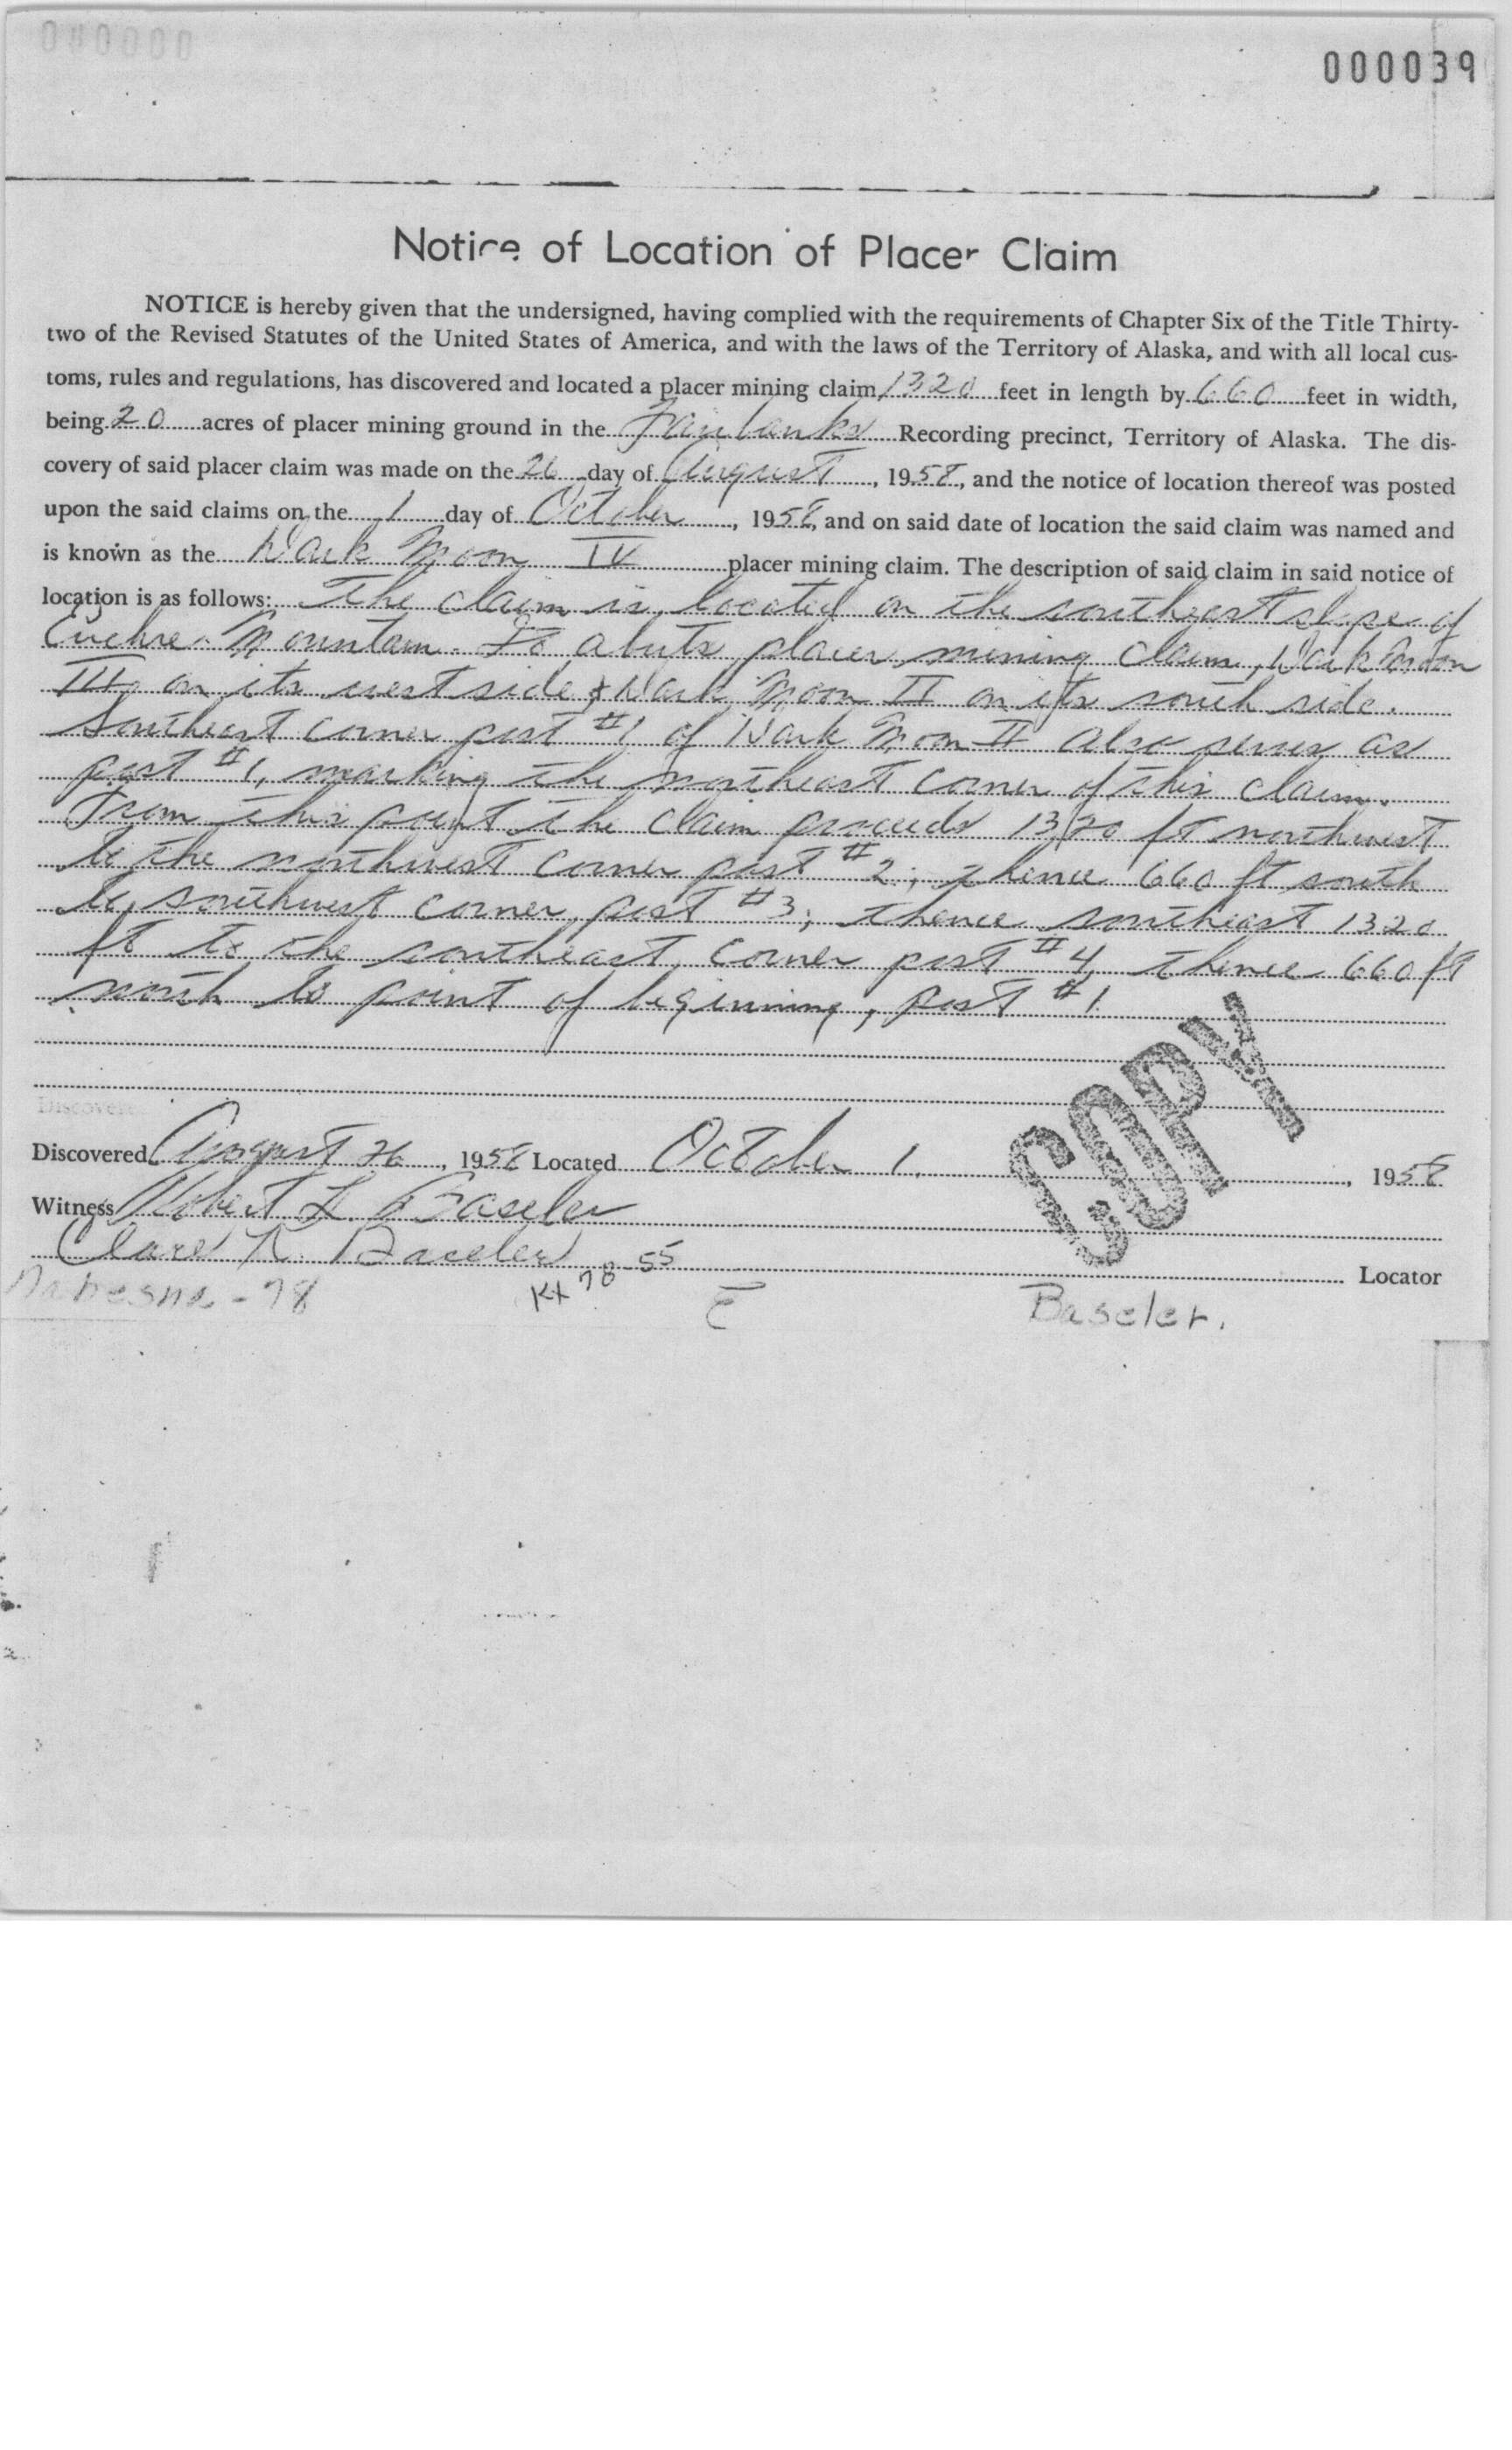 000000
000039
Notice of Location of Placer Claim
NOTICE is hereby given that the undersigned, having complied with the requirements of Chapter Six of the Title Thirty-
two of the Revised Statutes of the United States of America, and with the laws of the Territory of Alaska, and with all local cus-
toms, rules and regulations, has discovered and located a placer mining claim 1320 feet in length by 660 feet in width,
being 20 acres of placer mining ground in the Fairbanks Recording precinct, Territory of Alaska. The dis-
covery of said placer claim was made on the 26 day of August, 1958, and the notice of location thereof was posted
upon the said claims on the 1 day of October, 1958, and on said date of location the said claim was named and
is known as the Dark Moon IV placer mining claim. The description of said claim in said notice of
location is as follows: The claim is located on the southeast slope of
Euchre Mountain. It abuts placer mining claim, Dark Moon
III, on its west side & Dark Moon II on its south side.
Southeast corner post #1 of Dark Moon II also serves as
post #1, marking the northeast corner of this claim.
From this point the claim proceeds 1320 ft northwest
to the northwest corner post #2; thence 660 ft south
to southwest corner, post #3; thence southeast 1320
ft to the southeast corner post #4, thence 660 ft
north to point of beginning, post #1.
Discovered
Discovered August 26, 1958 Located October 1, 1958
Witness Robert L. Baseler
Clare R. Baseler
Locator
COPY
Nabesna - 78
Kx 78-55
Baseler.